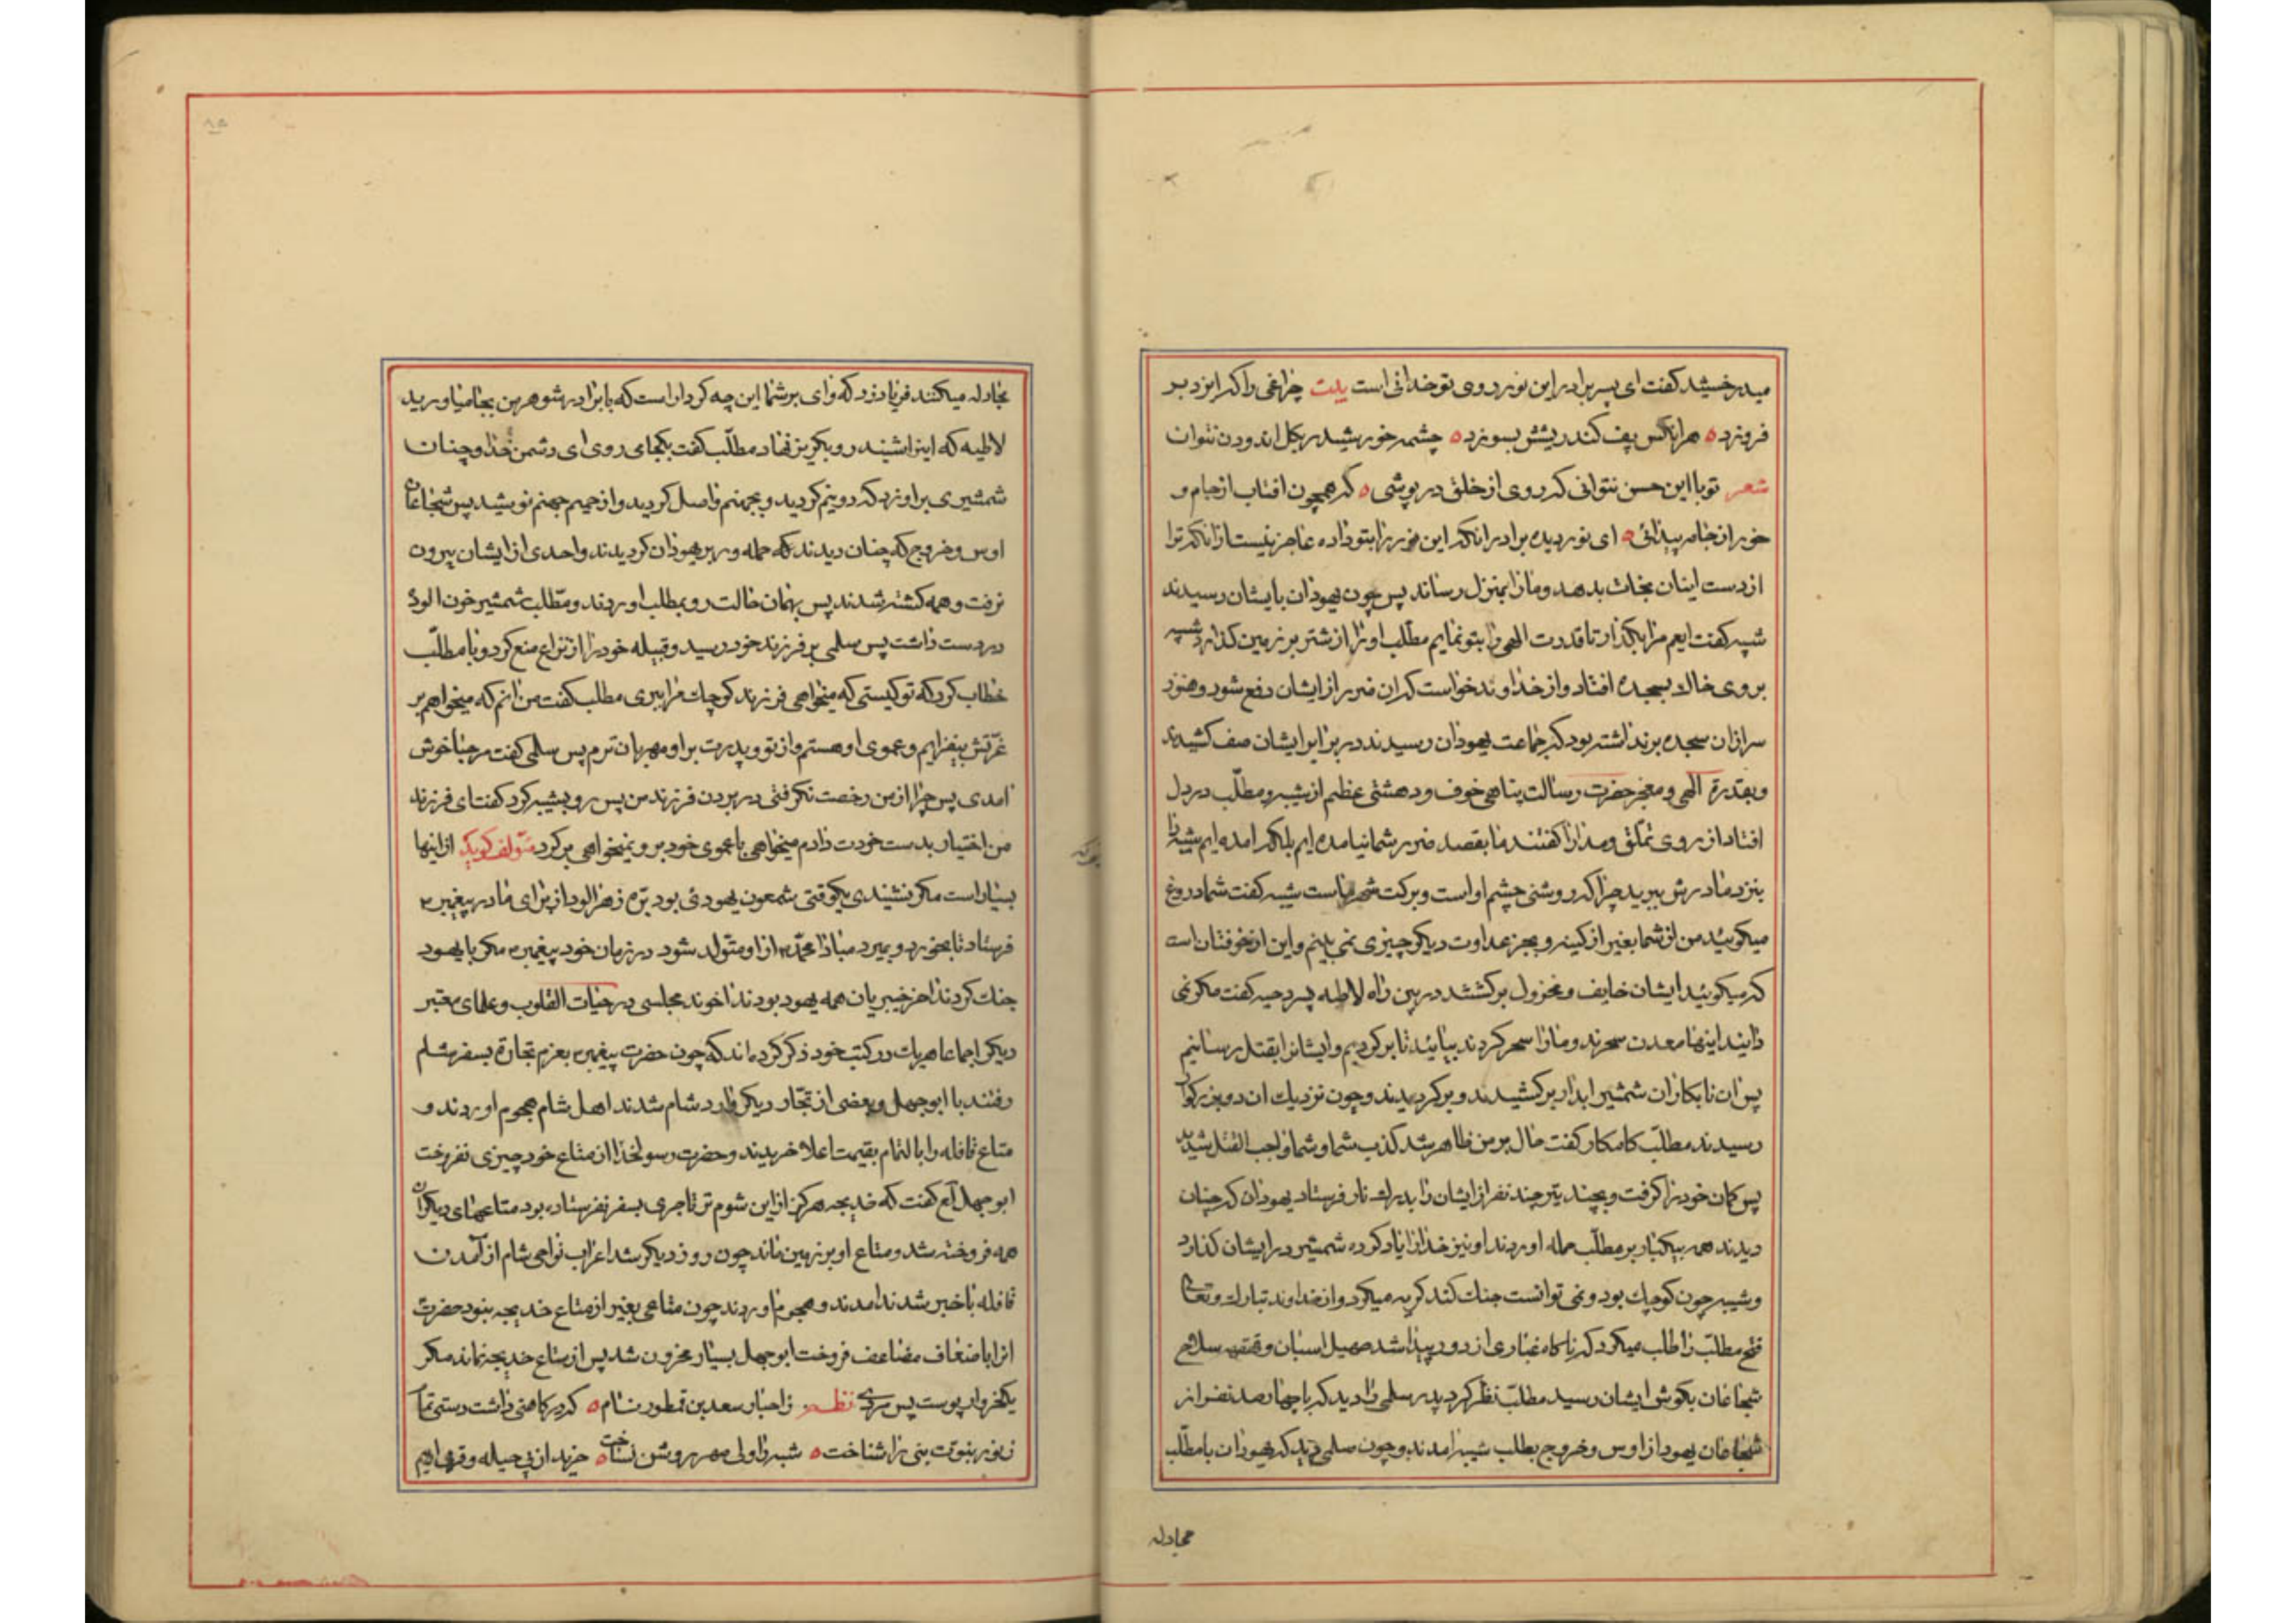 میدرخشید گفت ای پسر برادر این نور در روی تو خدائی است بیت چراغی را که ایزد بر
فروزد هر انکس پف کند ریشش بسوزد چشمه خورشید بکل اندودن نتوان
شعر تو با این حسن نتوانی که روی از خلق در پوشی که همچون افتاب از جام و
خور از جامه پیدائی ای نور دیده برادر انکه این نور را بتو داده عاجز نیست از انکه ترا
از دست اینان نجات بدهد و ما را بمنزل رساند پس چون یهودان بایشان رسیدند
شیبه گفت ایعم مرا بگذار تا قدرت الهی را بتو نمایم مطلب او را از شتر بر زمین گذارد شیبه
بروی خاک بسجده افتاد و از خداوند خواست که ان ضرر از ایشان دفع شود و هنوز
سر از ان سجده بر نداشته بود که جماعت یهودان رسیدند در برابر ایشان صف کشیدند
و بقدرة الهی و معجز حضرت رسالت پناهی خوف و دهشتی عظیم از شیبه و مطلّب در دل
افتاد از روی تملق و مدارا گفتند ما بقصد ضرر شما نیامده ایم بلکه امده ایم شیبه را
بنزد مادرش ببرید چرا که روشنی چشم او است و برکت شهر ماست شیبه گفت شما دروغ
میگوئید من از شما بغیر از کینه و بجز عداوت دیگر چیزی نمی بینم و این از خوفتان است
که میگوئید ایشان خایف و مخذول برگشتند در بین راه لاطیه پسر دحیه گفت مگر نمی
دانید اینها معدن سحرند و ما را سحر کردند بیائید تا برگردیم و ایشانرا بقتل رسانیم
پس ان نابکاران شمشیر ابدار برکشیدند و برگردیدند و چون نزدیک ان دو بزرگوار
رسیدند مطلّب کامکار گفت حال بر من ظاهر شد کذب شما و شما واجب القتل شدید
پس کمان خود را گرفت و بچند تیر چند نفر از ایشان را بدرک نار فرستاد یهودان که چنان
دیدند همه بیکبار بر مطلّب حمله اوردند او نیز خدا را یاد کرده شمشیر در ایشان گذارد
و شیبه چون کوچک بود و نمی توانست جنک کند گریه میکرد و از خداوند تبارک و تعالی
فتح مطلّب را طلب میکرد که ناگاه غباری از دور پیدا شد صهیل اسبان و قعقعه سلاح
شجاعان بگوش ایشان رسید مطلّب نظر کرد پدر سلمی را دید که با چهار صد نفر از
شجاعان یهود از اوس و خزرج بطلب شیبه امدند و چون سلمی دید که یهودان با مطلّب
مجادله
مجادله میکنند فریاد زد که وای بر شما این چه کردار است که با برادر شوهر من بجا میاورید
لاطیه که اینرا شنید رو بگریز نهاد مطلّب گفت بکجا می روی ای دشمن خدا و چنان
شمشیری بر او زد که دو نیم گردید و بجهنم واصل گردید و از حمیم جهنم نوشید پس شجاعان
اوس و خزرج که چنان دیدند که حمله ور بر یهودان گردیدند و احدی از ایشان بیرون
نرفت و همه کشته شدند پس بهمان حالت رو بمطلب اوردند و مطّلب شمشیر خون الود
در دست داشت پس سلمی بر فرزند خود رسید و قبیله خود را از نزاع منع کرد و با مطلّب
خطاب کرد که تو کیستی که میخواهی فرزند کوچک مرا ببری مطلب گفت من انم که میخواهم بر
عزّتش بیفزایم و عموی او هستم و از تو و پدرت بر او مهربان ترم پس سلمی گفت مرحبا خوش
امدی پس چرا از من رخصت نگرفتی در بردن فرزند من پس رو بشیبه کرد گفت ای فرزند
من اختیار بدست خودت دادم میخواهی با عموی خود برو و نمیخواهی برگرد مؤلف گوید از اینها
بسیار است مگر نشنیدی یکوقتی شمعون یهودی بود بره زهر الود از برای مادر پیغمبر
فرستاد تا بخورد و بمیرد مبادا محمّد از او متولد شود در زمان خود پیغمبر مگر با یهود
جنک کردند اخر خیبریان همه یهود بودند اخوند مجلسی در حیات القلوب و علمای معتبر
دیگر اجماعا هر یک در کتب خود ذکر کرده اند که چون حضرت پیغمبر بعزم تجارة بسفر شام
رفتند با ابوجهل و بعضی از تجّار دیگر وارد شام شدند اهل شام هجوم اوردند و
متاع قافله را بالتمام بقیمت اعلا خریدند و حضرت رسولخدا از متاع خود چیزی نفروخت
ابوجهل گفت که خدیجه هرگز از این شوم تر تاجری بسفر نفرستاده بود متاعهای دیگران
همه فروخته شد و متاع او بر زمین ماند چون روز دیگر شد اعراب نواحی شام از آمدن
قافله باخبر شدند امدند و هجوم اوردند چون متاعی بغیر از متاع خدیجه نبود حضرت
انرا باضعاف مضاعف فروخت ابوجهل بسیار محزون شد پس از متاع خدیجه نماند مگر
یکخروار پوست پس نظم ز احبار سعد بن قطور نام که در کاهنی داشت دستی تمام
ز نور نبوّت نبی را شناخت خزید از پی حیله و قرب